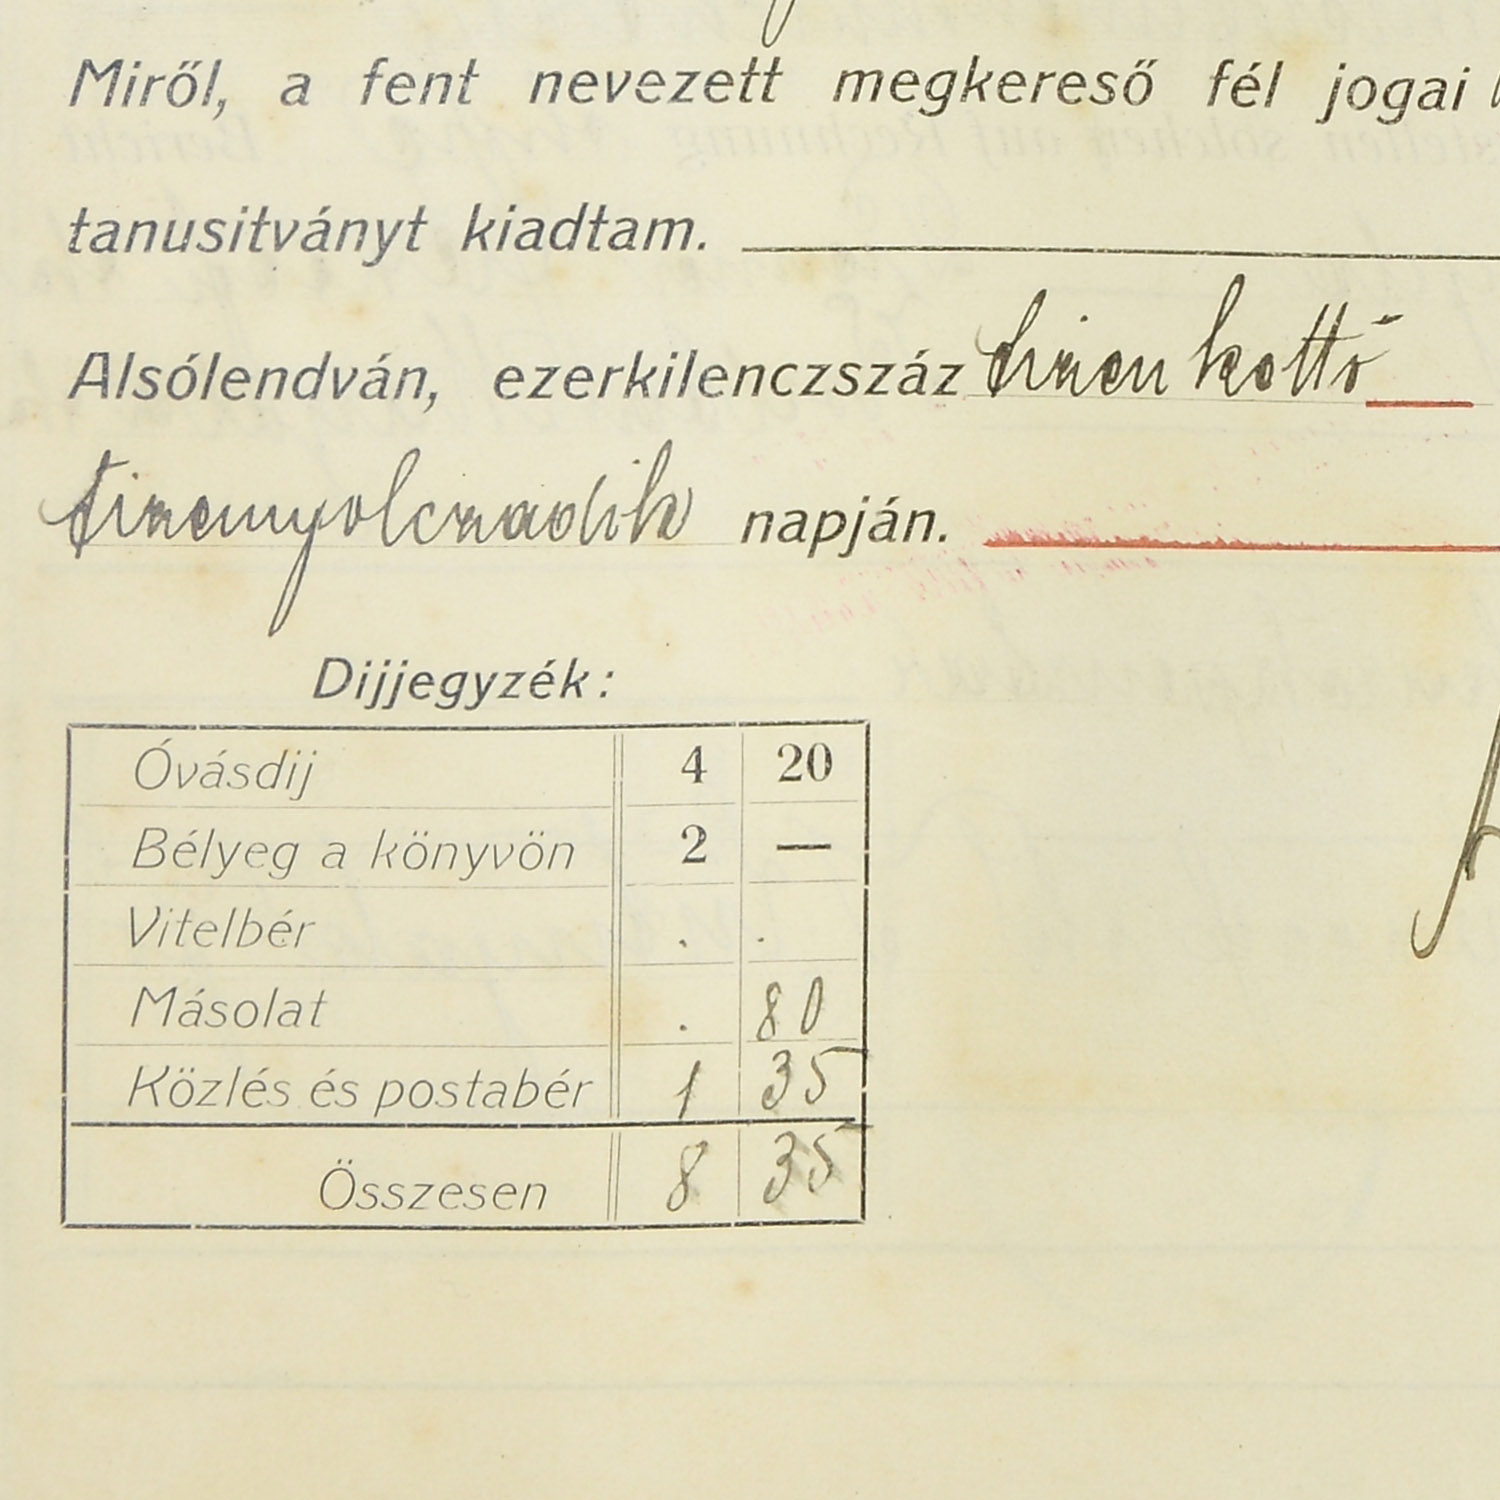 Miről, a fent nevezett megkereső fél jogai
tanusitványt kiadtam.
Alsólendván, ezerkilenczszáz tizenkettő
tizennyolczadik napján.
Dijjegyzék:
Óvásdij 4 20
Bélyeg a könyvön 2 —
Vitelbér . .
Másolat . 80
Közlés és postabér 1 35
Összesen 8 35